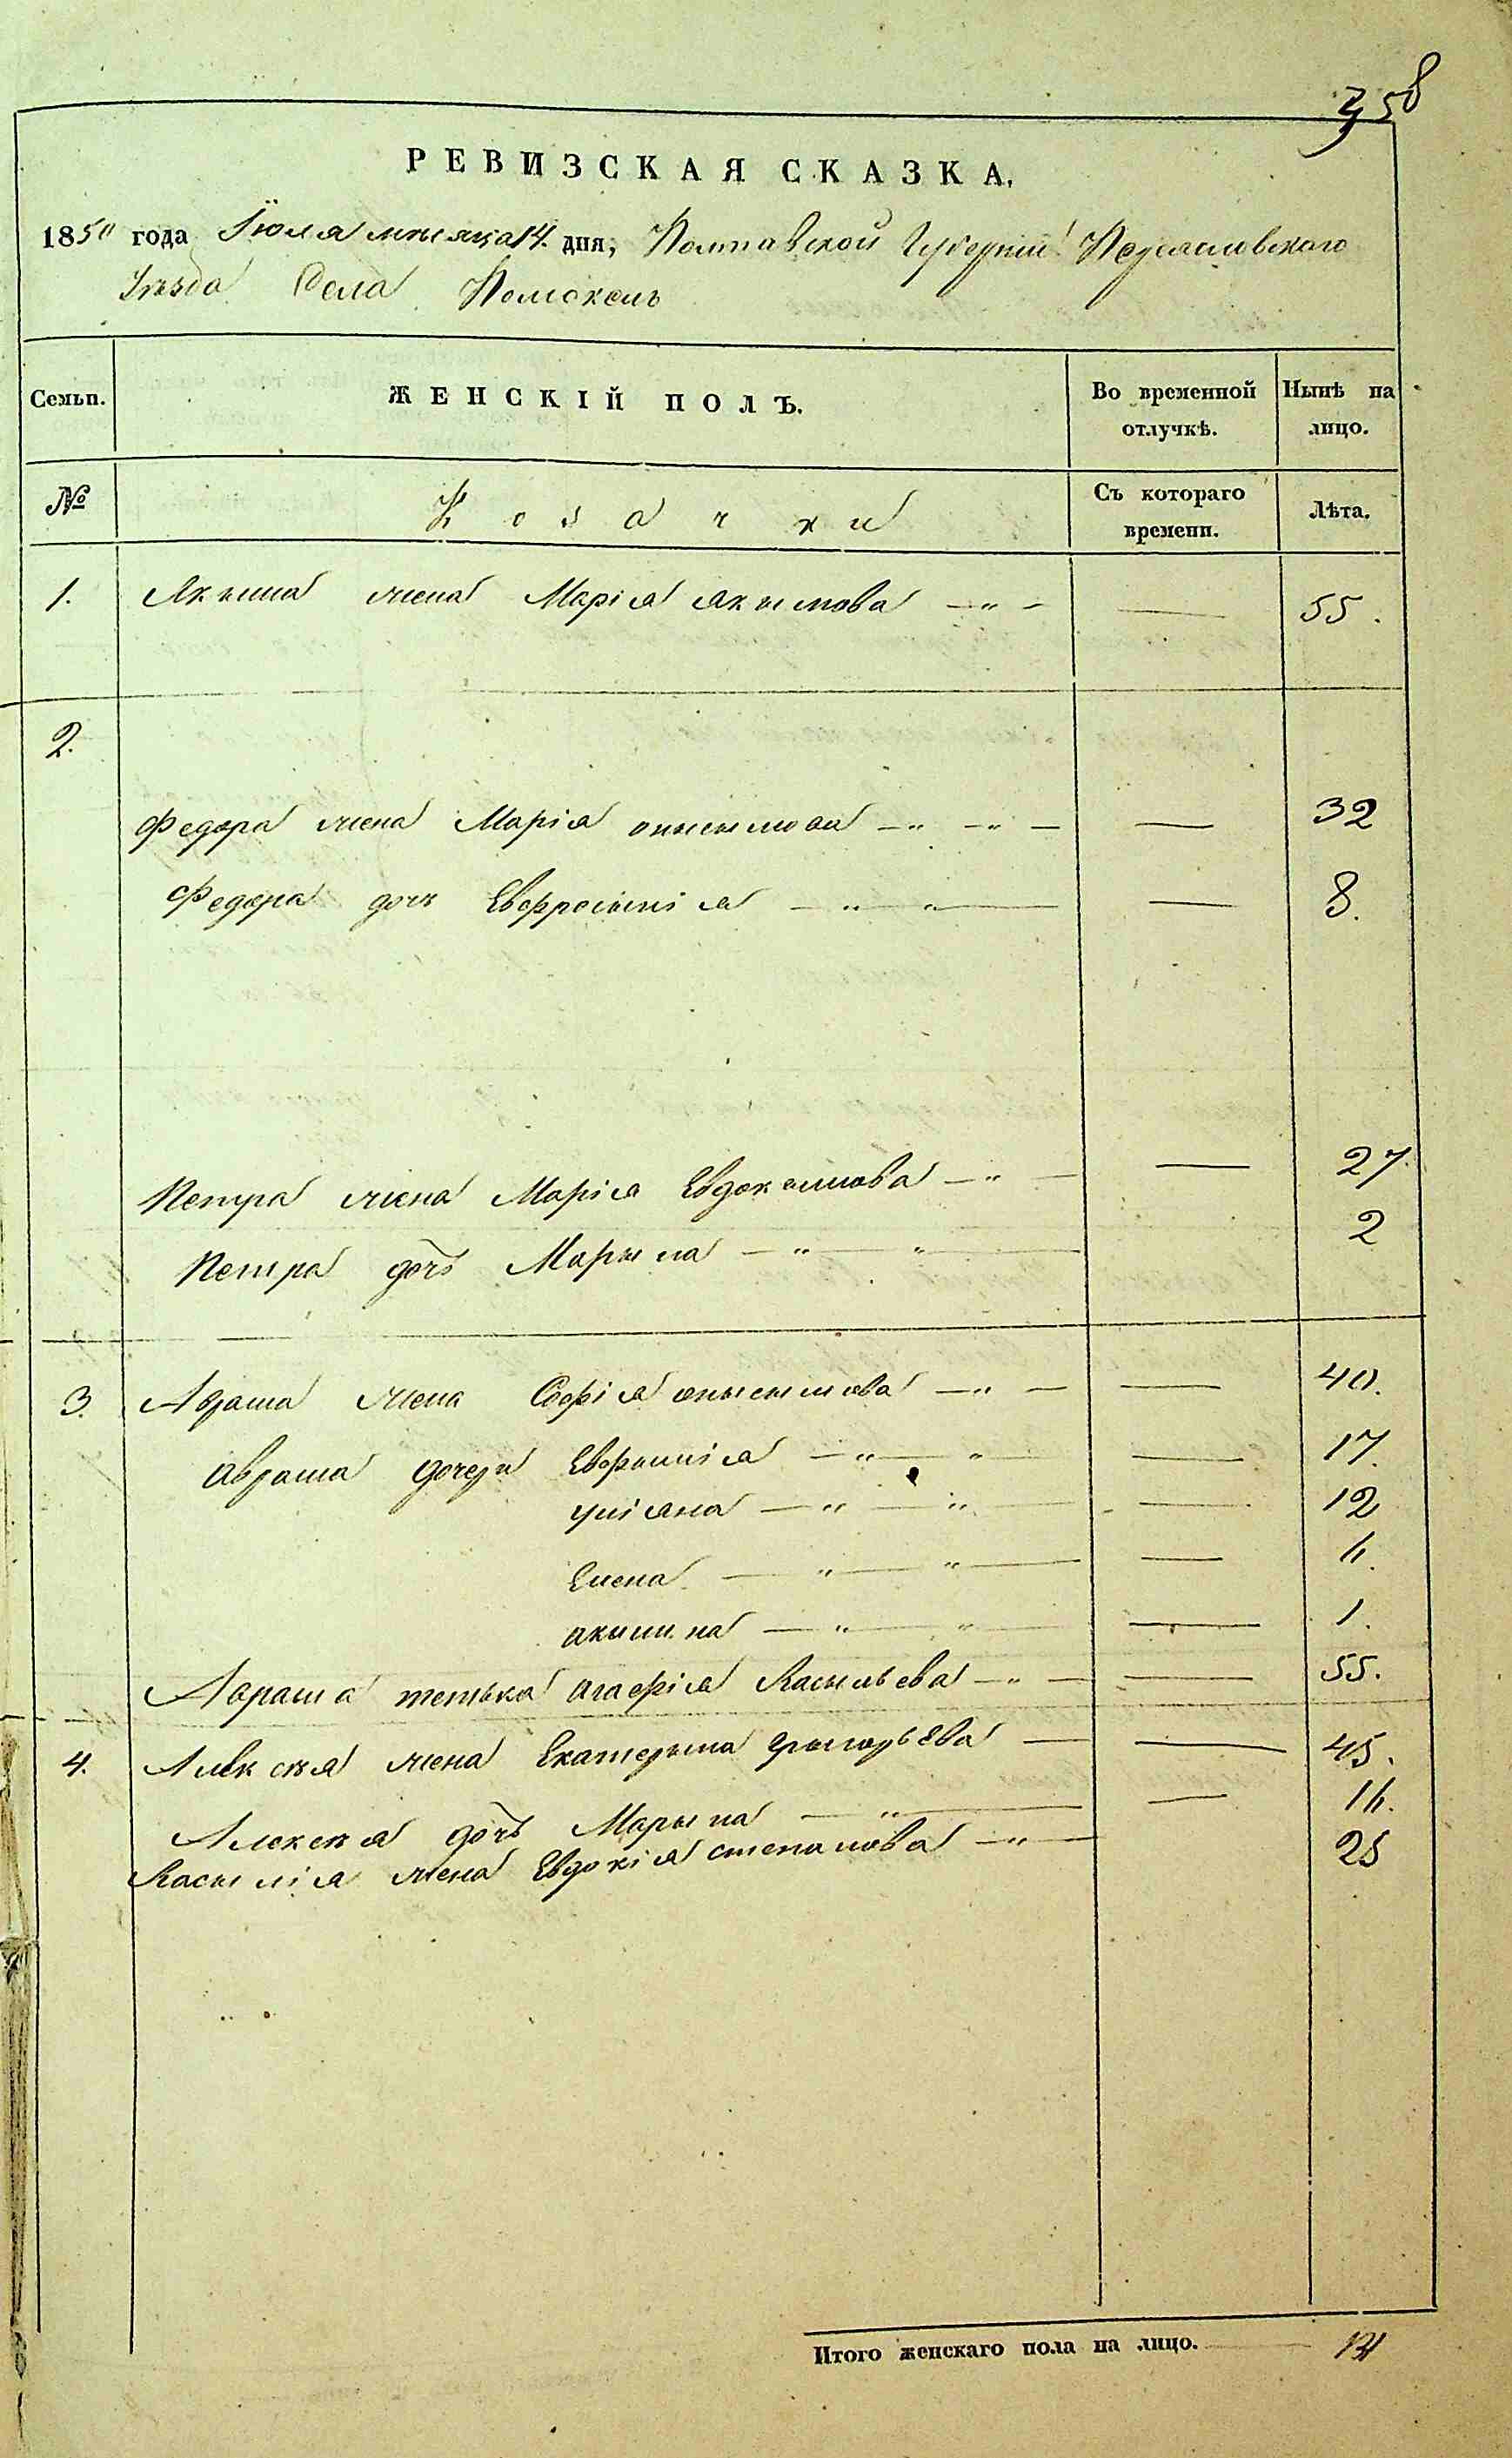 358
РЕВИЗСКАЯ СКАЗКА.
1850 года Іюля мѣсяца 14 дня, Полтавской Губерніи Переяславскаго
Уѣзда Села Помоклъ
Семьи. ЖЕНСКІЙ ПОЛЪ. Во временной отлучкѣ. Нынѣ на лицо.
№ Козачки Съ котораго времени. Лѣта.
1. Якима жена Марія Акимова —〃— — 55.
2.
Федора жена Марія онысымова —〃 —〃 — — 32
Федора дочь Евфросинія —〃 〃— — 8.
Петра жена Марія Евдокимова —〃 — — 27.
Петра дочь Марына —〃— 〃 — 2
3. Аврама жена Софія онысымова —〃 — — 40.
Аврама дочери Евфимія —〃— 〃 — — 17.
уліяна —〃 — 〃 — — 12
Елена —〃— 〃— — 11.
акилина —〃 〃 — — 1.
Аврама тетька агафія Васильева —〃 — — 55.
4. Алексѣя жена Екатерына Григорьева — — 45.
Алексѣя дочь Марына —〃— — 11.
Василія жена Евдокія степанова —〃— 25
Итого женскаго пола на лицо. — 14